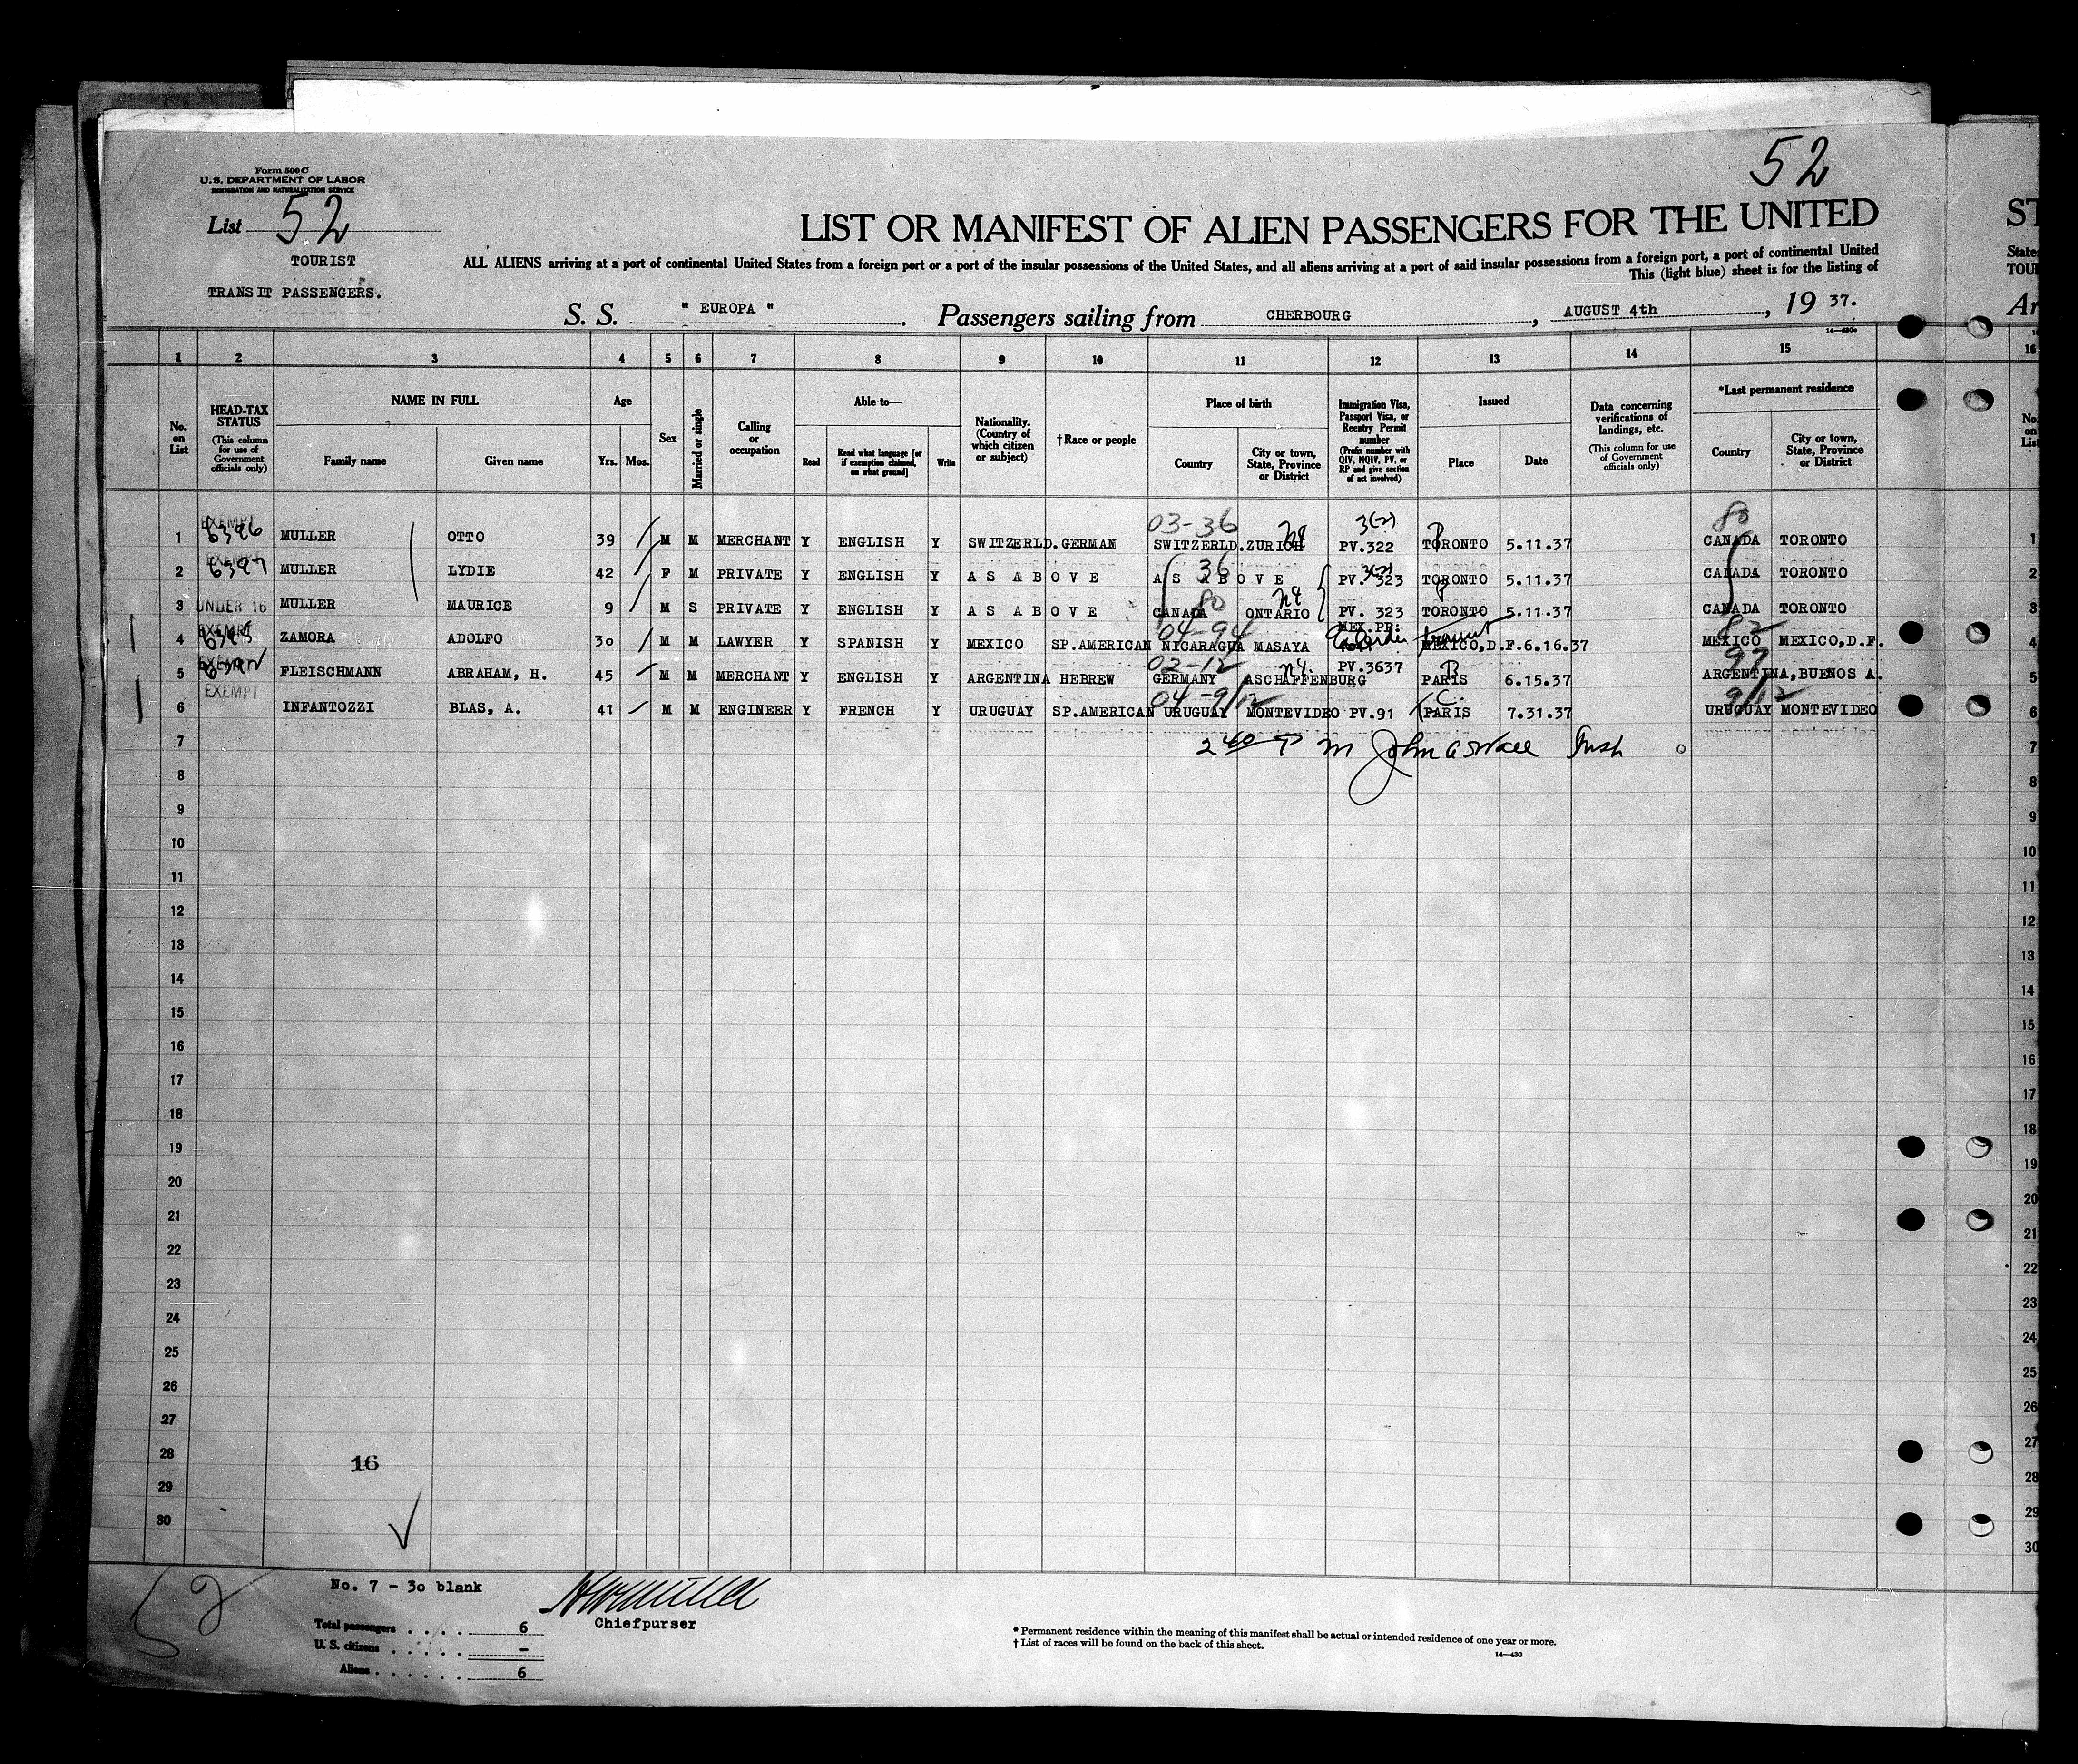 52
Form 500 C
U. S. DEPARTMENT OF LABOR
IMMIGRATION AND NATURALIZATION SERVICE
List 52
TOURIST
TRANSIT PASSENGERS.
LIST OR MANIFEST OF ALIEN PASSENGERS FOR THE UNITED
ST
ALL ALIENS arriving at a port of continental United States from a foreign port or a port of the insular possessions of the United States, and all aliens arriving at a port of said insular possessions from a foreign port, a port of continental United
States
This (light blue) sheet is for the listing of
TOU
S. S. " EUROPA ". Passengers sailing from CHERBOURG, AUGUST 4th, 19 37.
Ar
14—430a
1 2 3 4 5 6 7 8 9 10 11 12 13 14 15 16
No. on List
HEAD-TAX STATUS (This column for use of Government officials only)
NAME IN FULL
Family name
Given name
Age
Yrs. Mos.
Sex
Married or single
Calling or occupation
Able to—
Read
Read what language [or if exemption claimed, on what ground]
Write
Nationality. (Country of which citizen or subject)
† Race or people
Place of birth
Country
City or town, State, Province or District
Immigration Visa, Passport Visa, or Reentry Permit number (Prefix number with QIV, NQIV, PV, or RP and give section of act involved)
Issued
Place
Date
Data concerning verifications of landings, etc. (This column for use of Government officials only)
*Last permanent residence
Country
City or town, State, Province or District
No. on List
EXEMPT 03-36 3(2) 80
1 6396 MULLER OTTO 39 M M MERCHANT Y ENGLISH Y SWITZERLD. GERMAN SWITZERLD. ZURICH PV.322 TORONTO 5.11.37 CANADA TORONTO 1
EXEMPT 36 3(2)
2 6397 MULLER LYDIE 42 F M PRIVATE Y ENGLISH Y AS ABOVE AS ABOVE PV. 323 TORONTO 5.11.37 CANADA TORONTO 2
80
3 UNDER 16 MULLER MAURICE 9 M S PRIVATE Y ENGLISH Y AS ABOVE CANADA ONTARIO PV. 323 TORONTO 5.11.37 CANADA TORONTO 3
EXEMPT 04-94 MEX.PR: transit 82
4 ZAMORA ADOLFO 30 M M LAWYER Y SPANISH Y MEXICO SP.AMERICAN NICARAGUA MASAYA MEXICO, D.F. 6.16.37 MEXICO MEXICO, D.F. 4
EXEMPT 02-12 97
5 FLEISCHMANN ABRAHAM, H. 45 M M MERCHANT Y ENGLISH Y ARGENTINA HEBREW GERMANY ASCHAFFENBURG PV.3637 PARIS 6.15.37 ARGENTINA, BUENOS A. 5
EXEMPT 04-9/12 C. 9/12
6 INFANTOZZI BLAS, A. 41 M M ENGINEER Y FRENCH Y URUGUAY SP.AMERICAN URUGUAY MONTEVIDEO PV.91 PARIS 7.31.37 URUGUAY MONTEVIDEO 6
7 240 P M John 7
8 8
9 9
10 10
11 11
12 12
13 13
14 14
15 15
16 16
17 17
18 18
19 19
20 20
21 21
22 22
23 23
24 24
25 25
26 26
27 27
28 16 28
29 29
30 30
52
No. 7 - 30 blank
Chiefpurser
Total passengers . . . . 6
U. S. citizens . . . . . –
Aliens . . . . . . 6
* Permanent residence within the meaning of this manifest shall be actual or intended residence of one year or more.
† List of races will be found on the back of this sheet.
14—430